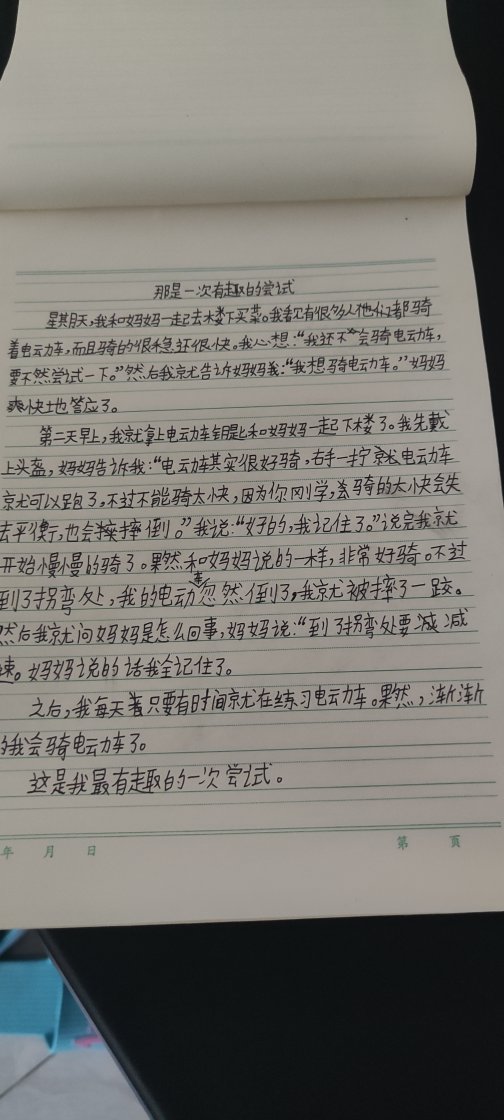 那是一次有趣的尝试
星期天,我和妈妈一起去楼下买菜。我看见有很多人他们都骑
着电动车,而且骑的很稳还很快。我心想:“我还不会骑电动车,
要不然尝试一下。”然后我就告诉妈妈我:“我想骑电动车。”妈妈
爽快地答应了。
第二天早上,我就拿上电动车钥匙和妈妈一起下楼了。我先戴
上头盔,妈妈告诉我:“电动车其实很好骑,右手一拧就电动车
就可以跑了,不过不能骑太快,因为你刚学,骑的太快会失
去平衡,也会摔倒。”我说:“好的,我记住了。”说完我就
开始慢慢的骑了。果然和妈妈说的一样,非常好骑。不过
到了拐弯处,我的电动车忽然倒了,我就被摔了一跤。
然后我就问妈妈是怎么回事,妈妈说:“到了拐弯处要减减
速。妈妈说的话我全记住了。
之后,我每天只要有时间就在练习电动车。果然,渐渐
的我会骑电动车了。
这是我最有趣的一次尝试。
年 月 日 第 页